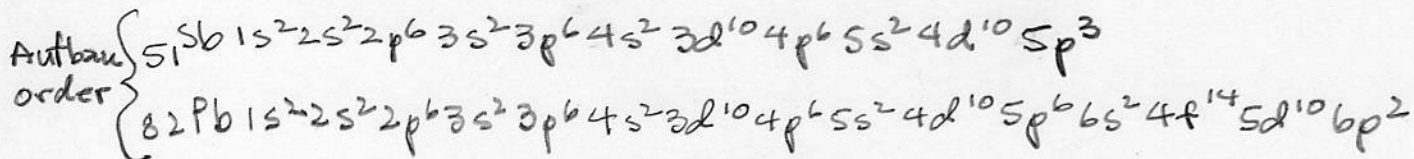 Aufbau order { 51Sb 1s²2s²2p⁶3s²3p⁶4s²3d¹⁰4p⁶5s²4d¹⁰5p³
82Pb 1s²2s²2p⁶3s²3p⁶4s²3d¹⁰4p⁶5s²4d¹⁰5p⁶6s²4f¹⁴5d¹⁰6p²